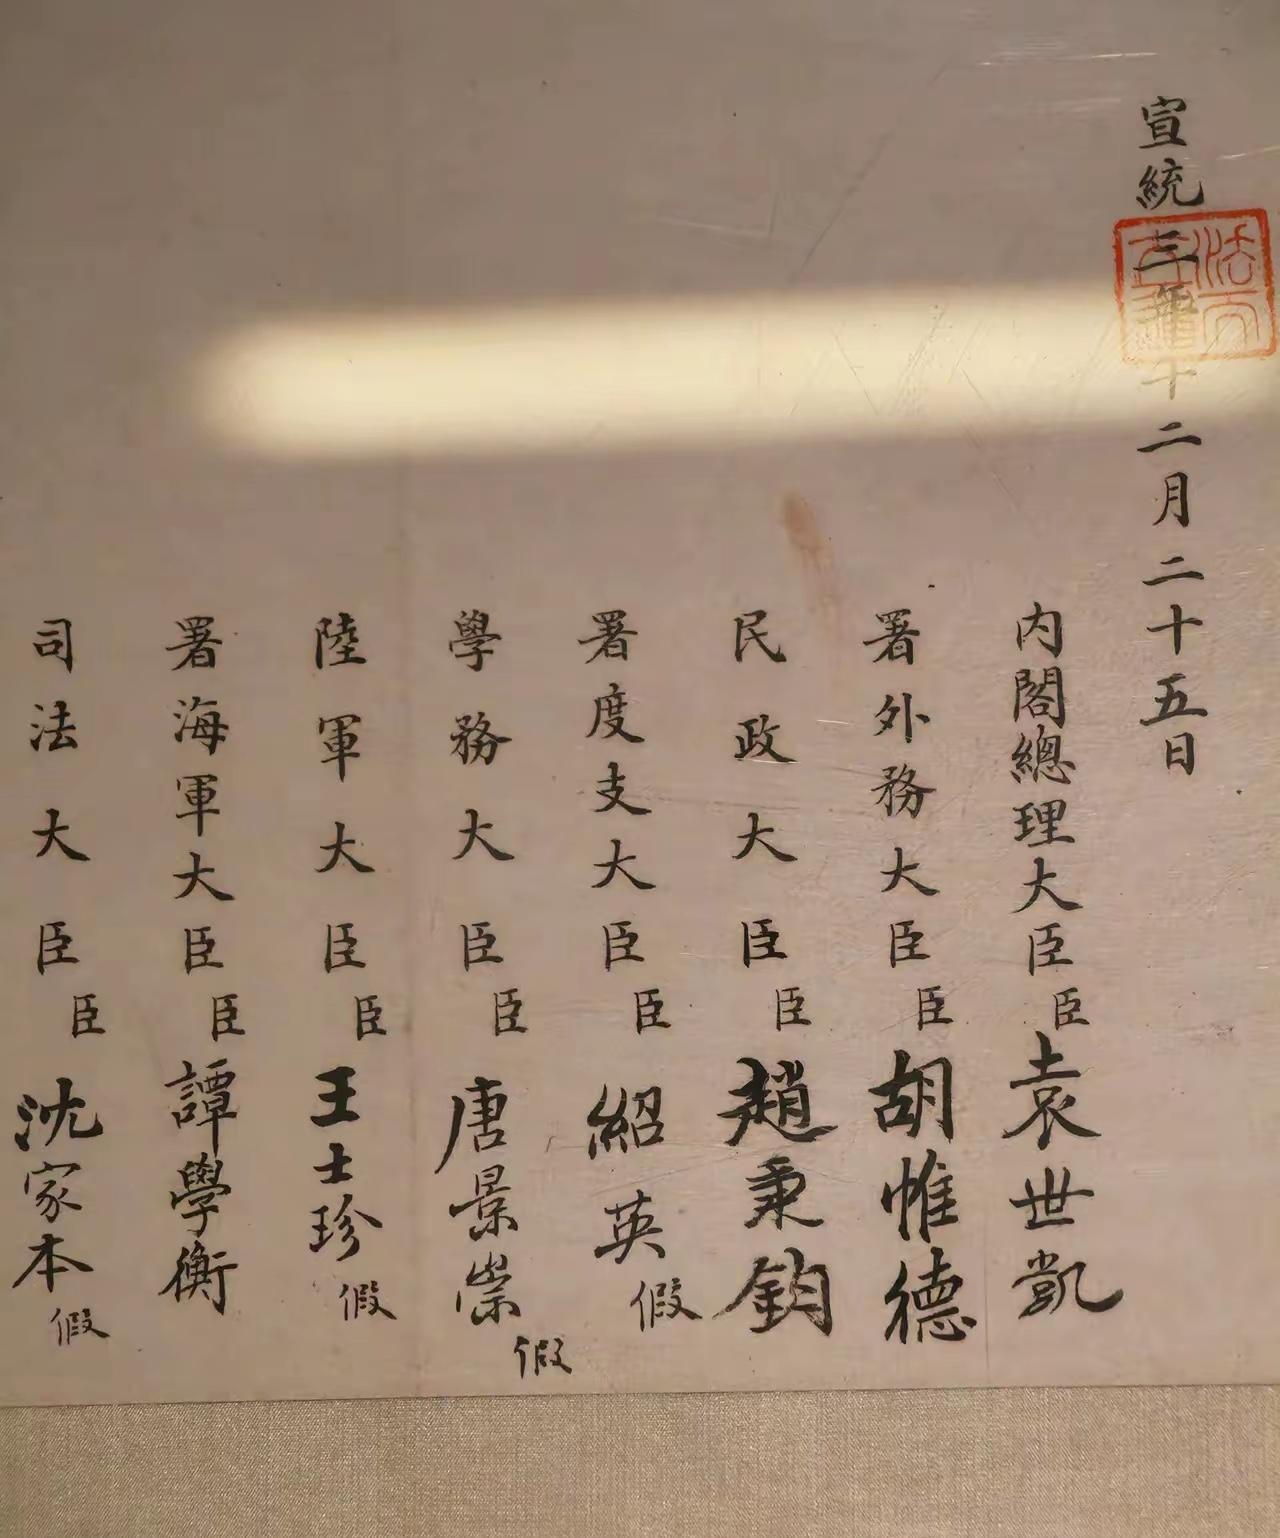 宣統三年十二月二十五日
法天立道
內閣總理大臣臣袁世凱
署外務大臣臣胡惟德
民政大臣臣趙秉鈞
署度支大臣臣紹英假
學務大臣臣唐景崇假
陸軍大臣臣王士珍假
署海軍大臣臣譚學衡
司法大臣臣沈家本假